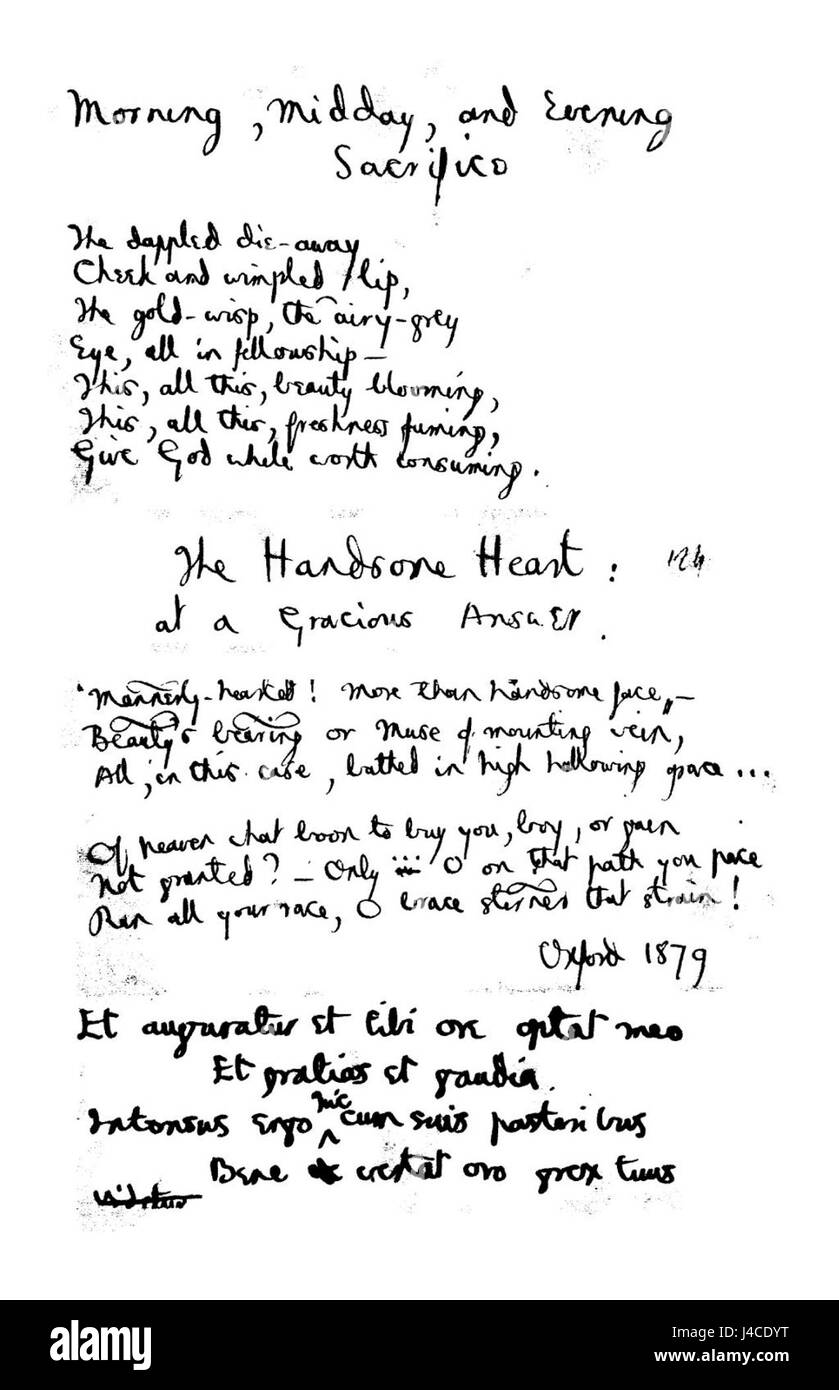 Morning, Midday, and Evening
Sacrifice
The dappled die-away
Cheek and wimpled lip,
The gold-wisp, the airy-grey
Eye, all in fellowship —
This, all this, beauty blooming,
This, all this, freshness fuming,
Give God while worth consuming.
The Handsome Heart: 124
at a Gracious Answer.
'Mannerly-hearted! more than handsome face, —
Beauty's bearing or Muse of mounting vein,
All, in this case, bathed in high hallowing grace ...
Of heaven what boon to buy you, boy, or gain
Not granted? — Only ... O on that path you pace
Run all your race, O brace sterner that strain!
Oxford 1879
Et auguratur et tibi ore optat meo
Et gratias et gaudia.
Intonsus ergo hic cum suis pastoribus
Bene crescat oro grex tuus
alamy
Image ID: J4CDYT
www.alamy.com